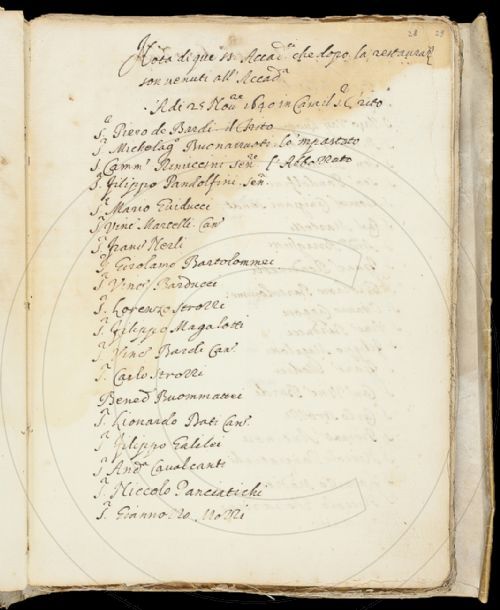 28 29
Nota di que SS.ri Accad.ci che dopo la restauraz.
son venuti all'Accad.a
A di 25 Nov.re 1640 in Casa il S. Trito
S.r Piero de Bardi il Trito
S.r Michelag.o Buonarruoti lo'mpastato
S. Camm.o Rinuccini Sen.re l'Abbozzato
S.r Filippo Pandolfini Sen.
S.r Mario Guiducci
S.r Vinc.o Martelli Can.
S.r Franc.o Nerli
S.r Girolamo Bartolommei
S.r Vinc.o Barducci
S.r Lorenzo Strozzi
S.r Filippo Magalotti
S.r Vinc.o Bardi Can.o
S.r Carlo Strozzi
Bened.o Buommattei
S.r Lionardo Dati Can.o
S.r Filippo Galilei
S.r And.a Cavalcanti
S.r Niccolo Panciatichi
S.r Giannozzo